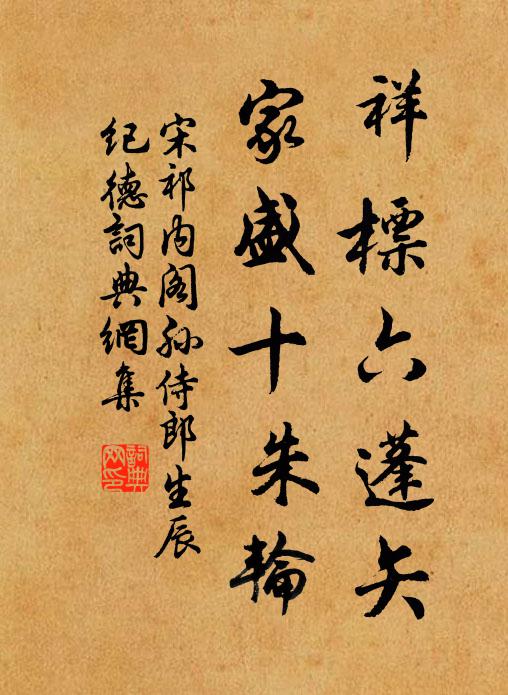 祥標六蓬矢
家盛十朱輪
宋祁內閣孫侍郎生辰
紀德詞典網集
詞典網印